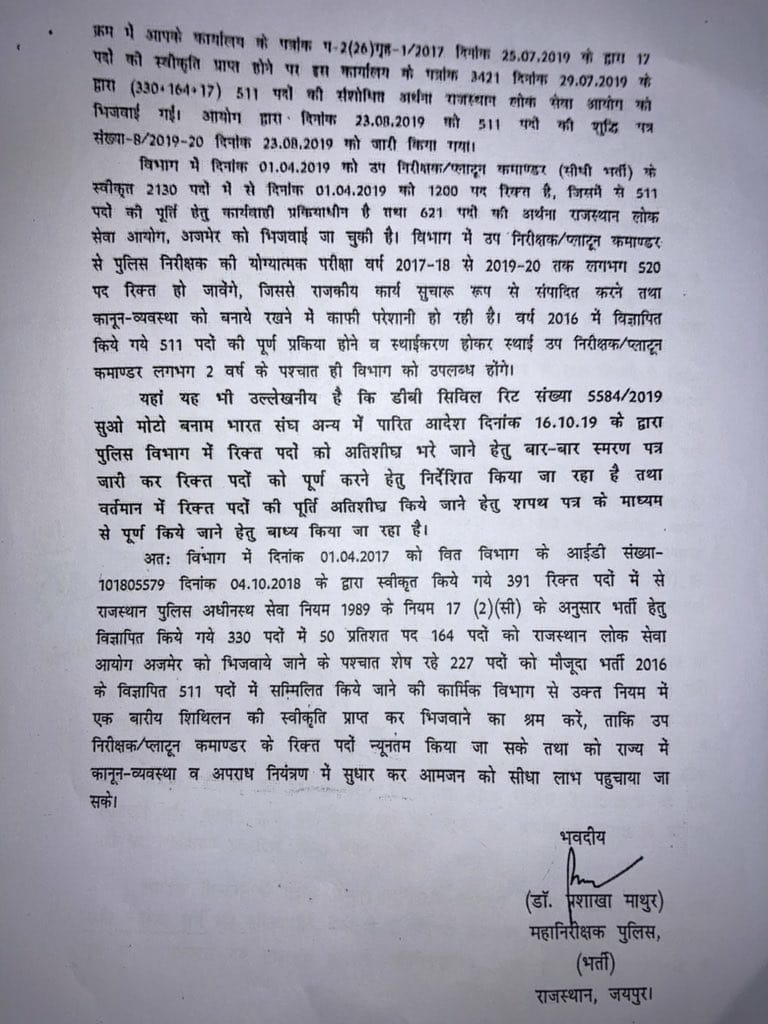 क्रम में आपके कार्यालय के पत्रांक प-2(26)गृह-1/2017 दिनांक 25.07.2019 के द्वारा 17
पदों की स्वीकृति प्राप्त होने पर इस कार्यालय के पत्रांक 3421 दिनांक 29.07.2019 के
द्वारा (330+164+17) 511 पदों की संशोधित अर्थना राजस्थान लोक सेवा आयोग को
भिजवाई गई। आयोग द्वारा दिनांक 23.08.2019 को 511 पदों की शुद्धि पत्र
संख्या-8/2019-20 दिनांक 23.08.2019 को जारी किया गया।
विभाग में दिनांक 01.04.2019 को उप निरीक्षक/प्लाटून कमाण्डर (सीधी भर्ती) के
स्वीकृत 2130 पदों में से दिनांक 01.04.2019 को 1200 पद रिक्त है, जिसमें से 511
पदों की पूर्ति हेतु कार्यवाही प्रकियाधीन है तथा 621 पदों की अर्थना राजस्थान लोक
सेवा आयोग, अजमेर को भिजवाई जा चुकी है। विभाग में उप निरीक्षक/प्लाटून कमाण्डर
से पुलिस निरीक्षक की योग्यात्मक परीक्षा वर्ष 2017-18 से 2019-20 तक लगभग 520
पद रिक्त हो जावेंगे, जिससे राजकीय कार्य सुचारू रूप से संपादित करने तथा
कानून-व्यवस्था को बनाये रखने में काफी परेशानी हो रही है। वर्ष 2016 में विज्ञापित
किये गये 511 पदों की पूर्ण प्रकिया होने व स्थाईकरण होकर स्थाई उप निरीक्षक/प्लाटून
कमाण्डर लगभग 2 वर्ष के पश्चात ही विभाग को उपलब्ध होंगे।
यहां यह भी उल्लेखनीय है कि डीबी सिविल रिट संख्या 5584/2019
सुओ मोटो बनाम भारत संघ अन्य में पारित आदेश दिनांक 16.10.19 के द्वारा
पुलिस विभाग में रिक्त पदों को अतिशीघ्र भरे जाने हेतु बार-बार स्मरण पत्र
जारी कर रिक्त पदों को पूर्ण करने हेतु निर्देशित किया जा रहा है तथा
वर्तमान में रिक्त पदों की पूर्ति अतिशीघ्र किये जाने हेतु शपथ पत्र के माध्यम
से पूर्ण किये जाने हेतु बाध्य किया जा रहा है।
अतः विभाग में दिनांक 01.04.2017 को वित विभाग के आईडी संख्या-
101805579 दिनांक 04.10.2018 के द्वारा स्वीकृत किये गये 391 रिक्त पदों में से
राजस्थान पुलिस अधीनस्थ सेवा नियम 1989 के नियम 17 (2)(सी) के अनुसार भर्ती हेतु
विज्ञापित किये गये 330 पदों में 50 प्रतिशत पद 164 पदों को राजस्थान लोक सेवा
आयोग अजमेर को भिजवाये जाने के पश्चात शेष रहे 227 पदों को मौजूदा भर्ती 2016
के विज्ञापित 511 पदों में सम्मिलित किये जाने की कार्मिक विभाग से उक्त नियम में
एक बारीय शिथिलन की स्वीकृति प्राप्त कर भिजवाने का श्रम करें, ताकि उप
निरीक्षक/प्लाटून कमाण्डर के रिक्त पदों न्यूनतम किया जा सके तथा को राज्य में
कानून-व्यवस्था व अपराध नियंत्रण में सुधार कर आमजन को सीधा लाभ पहुचाया जा
सके।
भवदीय
(डॉ. प्रशाखा माथुर)
महानिरीक्षक पुलिस,
(भर्ती)
राजस्थान, जयपुर।